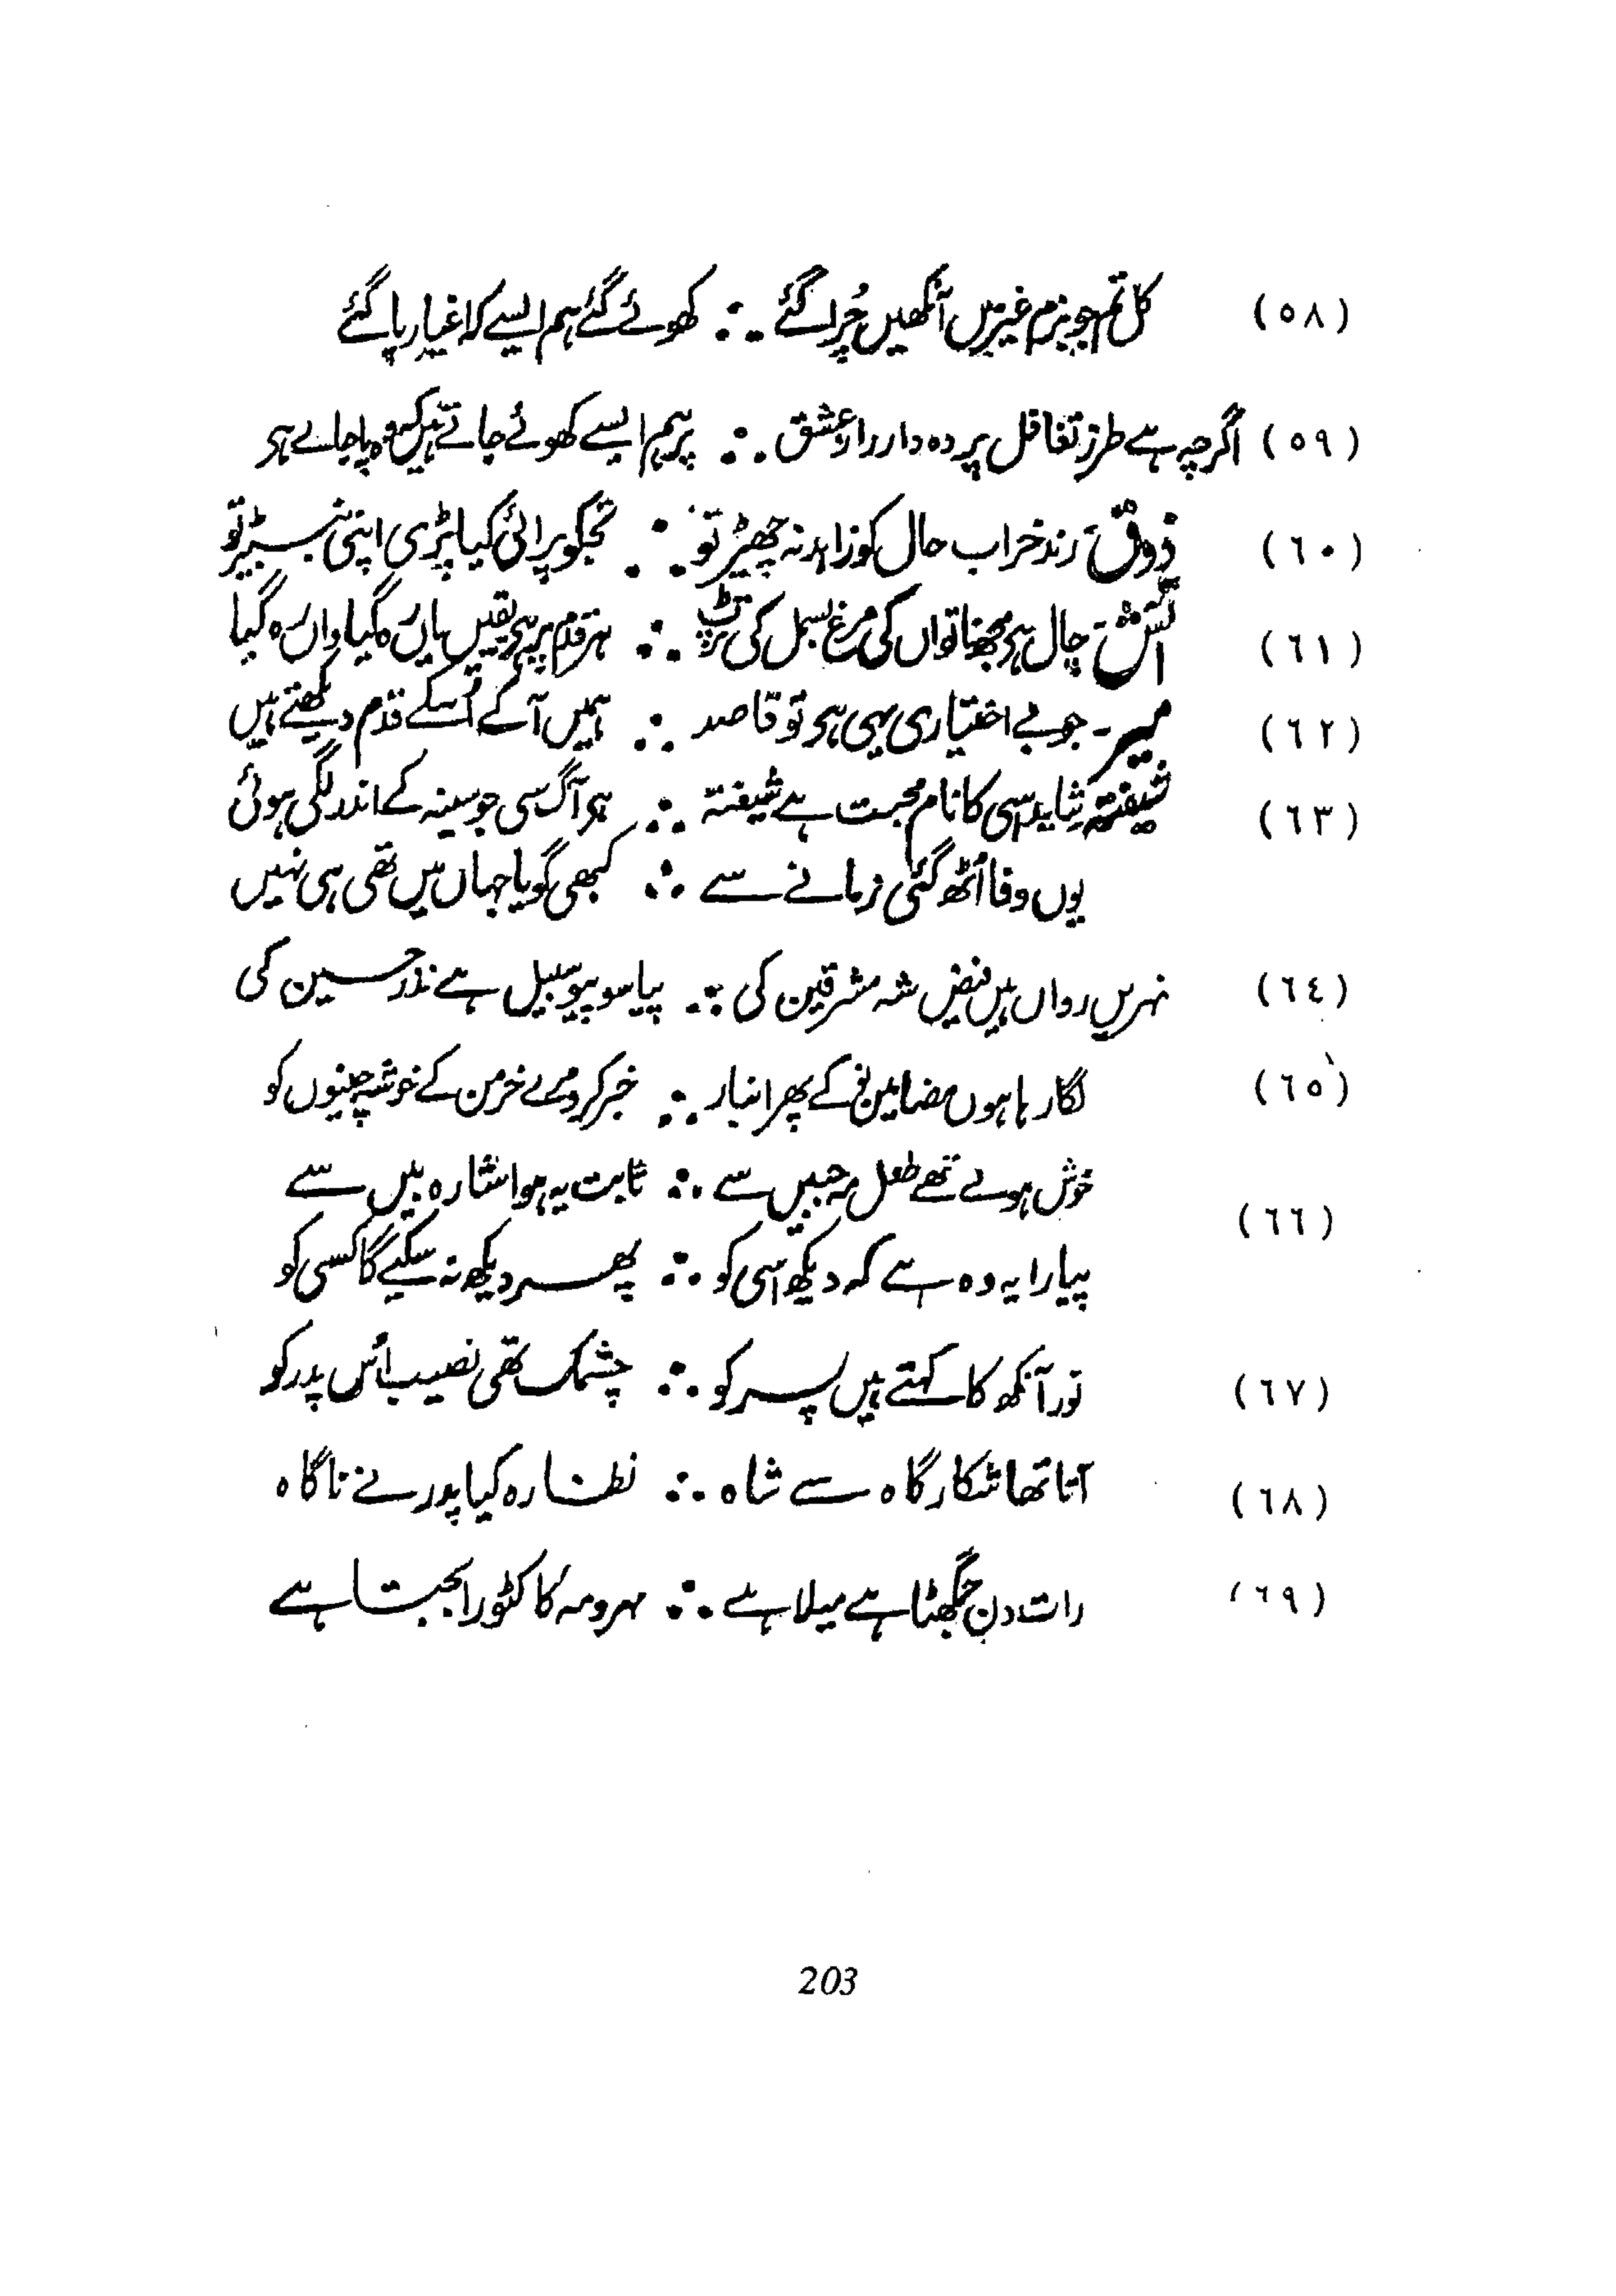 (٥٨) کل تم جو بزم غیر میں آنکھیں چُرا گئے ∴ کھوئے گئے ہم ایسے کہ اغیار پا گئے
(٥٩) اگرچہ ہے طرز تغافل پردہ دار راز عشق ∴ پر ہم ایسے کھوئے جاتے ہیں کہ وہ پا جائے ہر
(٦٠) ذوقؔ رند خراب حال کو زاہد نہ چھیڑ تو ∴ تجکو پرائی کیا پڑی اپنی نبیڑ تو
(٦١) آتشؔ چال ہر مجھ ناتواں کی مرغ بسمل کی تڑپ ∴ ہر قدم پر ہر یقیں یاں رہ گیا واں رہ گیا
(٦٢) میر۔ جو بے اختیاری یہی ہر تو قاصد ∴ ہمیں آکے اُسکے قدم دیکھتے ہیں
(٦٣) شیفتہ شاید اسی کا نام محبت ہے شیفتہ ∴ ہر آگ سی جو سینہ کے اندر لگی ہوئی
یوں وفا اُٹھ گئی زمانے سے ∴ کبھی گویا جہاں میں تھی ہی نہیں
(٦٤) نہریں رواں ہیں فیض شہ مشرقین کی ∴ پیاسو پیو سبیل ہے نذر حسین کی
(٦٥) لگا رہا ہوں مضامین نو کے پھر انبار ∴ خبر کرو مرے خرمن کے خوشہ چینوں کو
(٦٦) خوش ہوتے تھے طفل مہ جبیں سے ∴ ثابت یہ ہوا ستارہ بیں سے
پیارا یہ وہ ہے کہ دیکھ اسی کو ∴ پھر دیکھ نہ سکیے گا کسی کو
(٦٧) نور آنکھ کا کہتے ہیں پسر کو ∴ چشمک تھی نصیب اُس پدر کو
(٦٨) آتا تھا شکار گاہ سے شاہ ∴ نظارہ کیا پدر نے ناگاہ
(٦٩) رات دن جمگھٹا ہے میلا ہے ∴ مہر و مہ کا کٹورا بجتا ہے
203